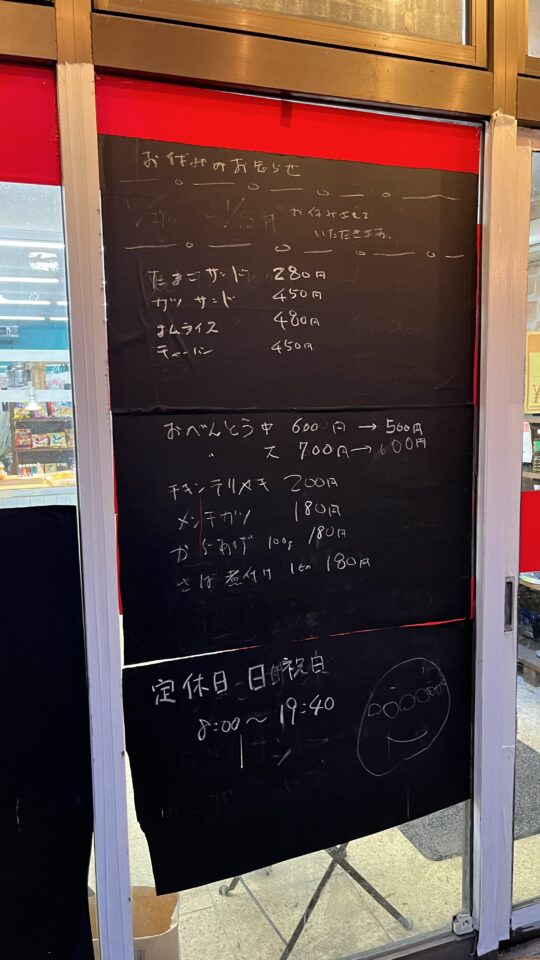 お休みのお知らせ
12/29日 〜 1/13月 お休みさせて
いただきます。
たまごサンド 280円
カツサンド 450円
オムライス 480円
チャーハン 450円
おべんとう 中 600円 → 500円
〃 大 700円 → 600円
チキンテリヤキ 200円
メンチカツ 180円
からあげ 100g 180円
さば煮付け 180円
定休日 日曜祝日
8:00〜19:40